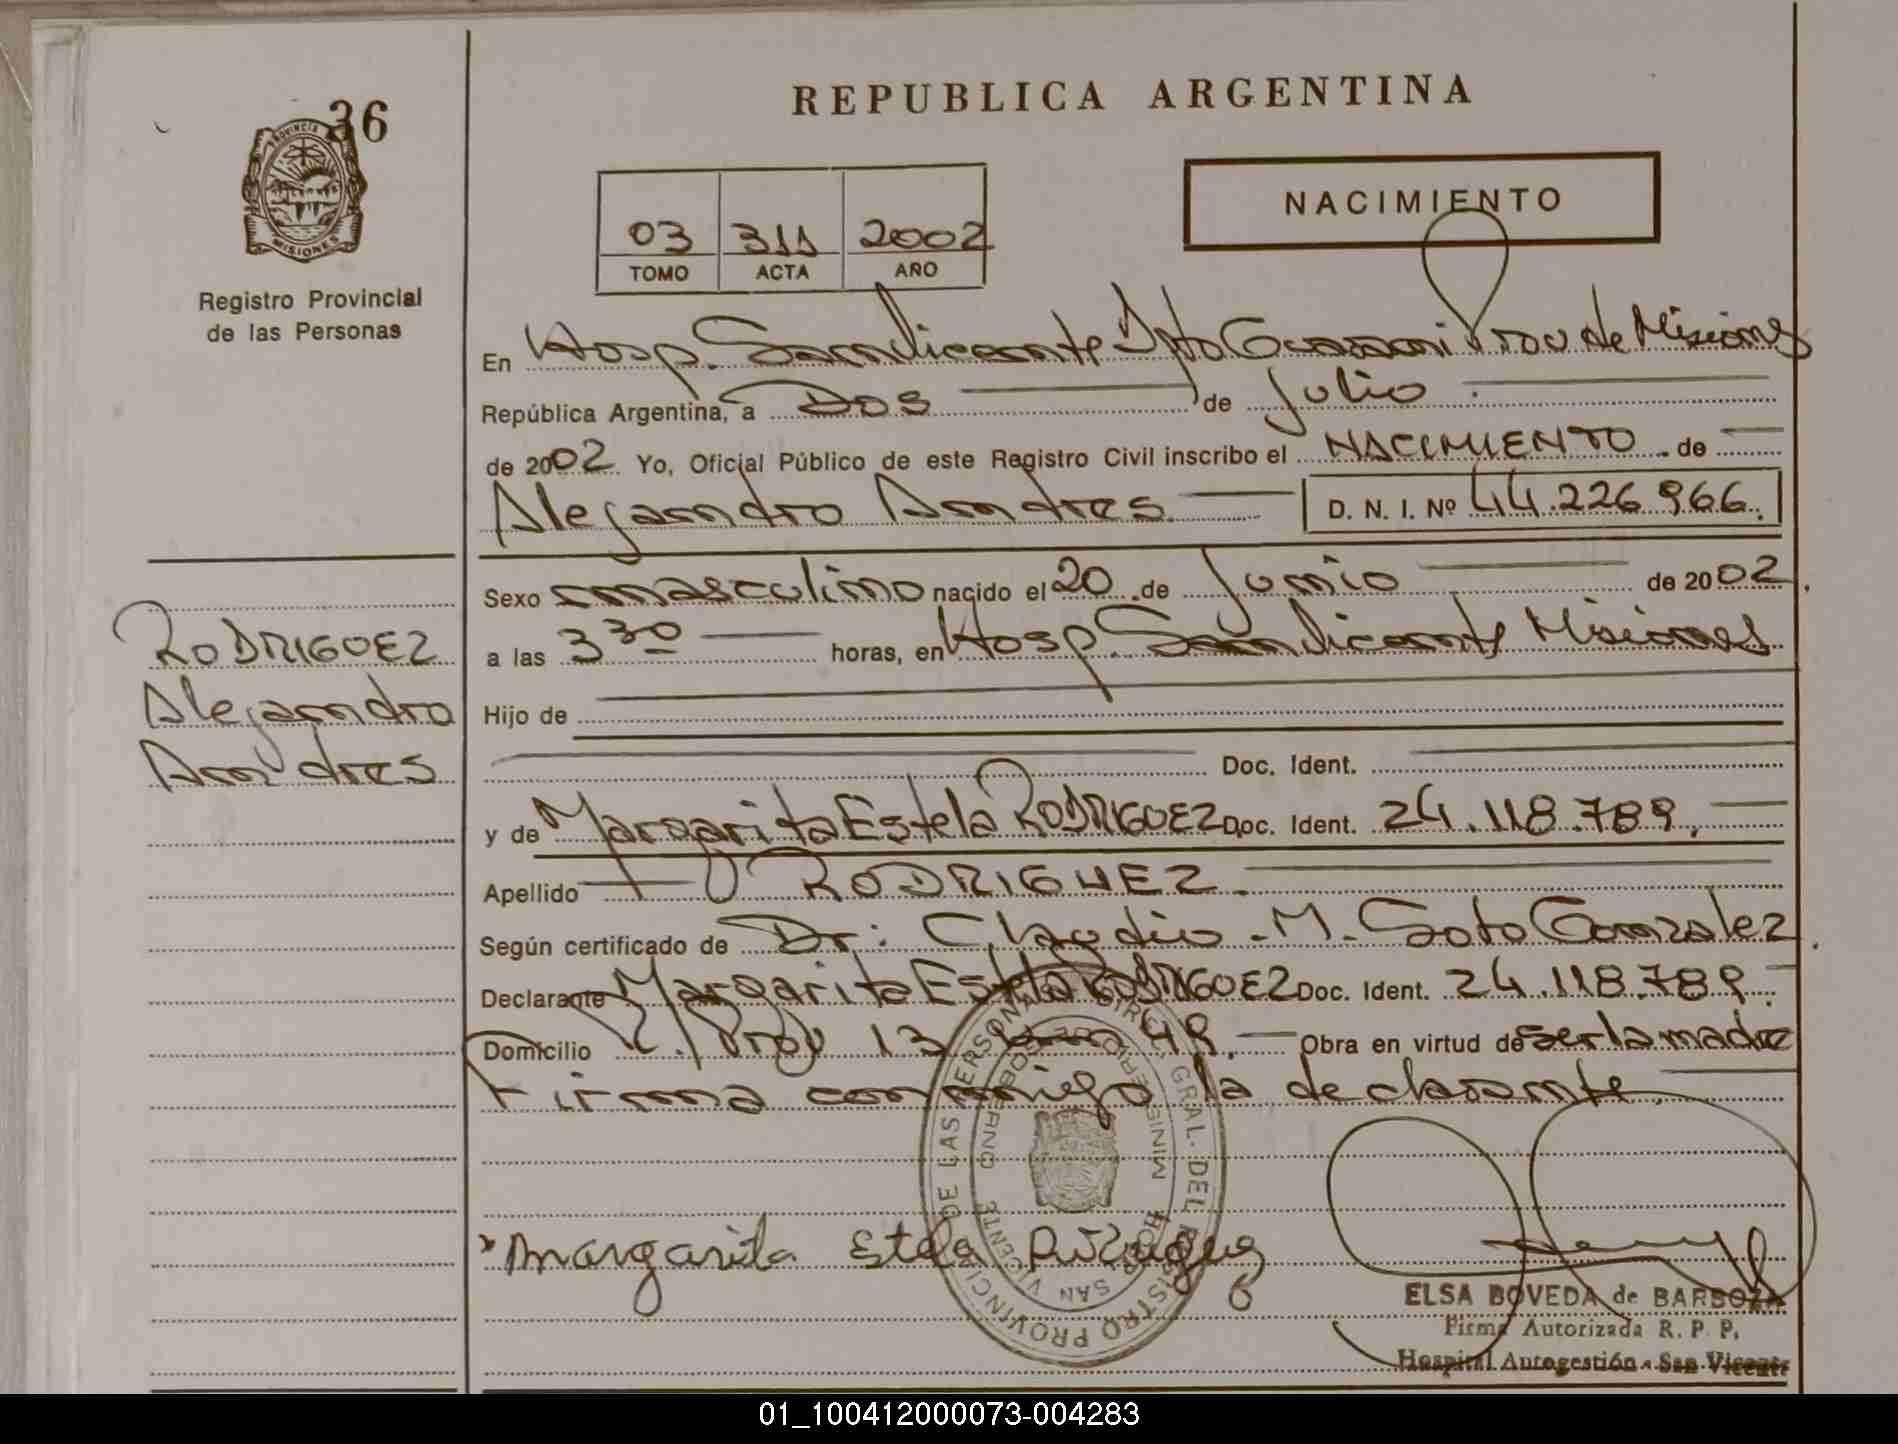 REPUBLICA ARGENTINA
36
PROVINCIA
MISIONES
Registro Provincial
de las Personas
03 311 2002
TOMO ACTA AÑO
NACIMIENTO
En Hosp. San Vicente Dpto Guarani Prov de Misiones
República Argentina, a Dos de Julio
de 2002 Yo, Oficial Público de este Registro Civil inscribo el NACIMIENTO de
Alejandro Andres D. N. I. Nº 44.226.966.
Sexo masculino nacido el 20 de Junio de 2002
a las 3 30 horas, en Hosp. San Vicente Misiones
Hijo de
Doc. Ident.
y de Margarita Estela RODRIGUEZ Doc. Ident. 24.118.789.
Apellido RODRIGUEZ.
Según certificado de Dr. Claudio M. Soto Gonzalez
Declarante Margarita Estela RODRIGUEZ Doc. Ident. 24.118.789.
Domicilio Prov 13 Km 49. Obra en virtud de ser la madre
Firma conmigo la declarante.
RODRIGUEZ
Alejandro
Andres
Margarita Estela
ELSA BOVEDA de BARBOZA
Firma Autorizada R. P. P.
Hospital Autogestión - San Vicente
SAN VICENTE
01_100412000073-004283